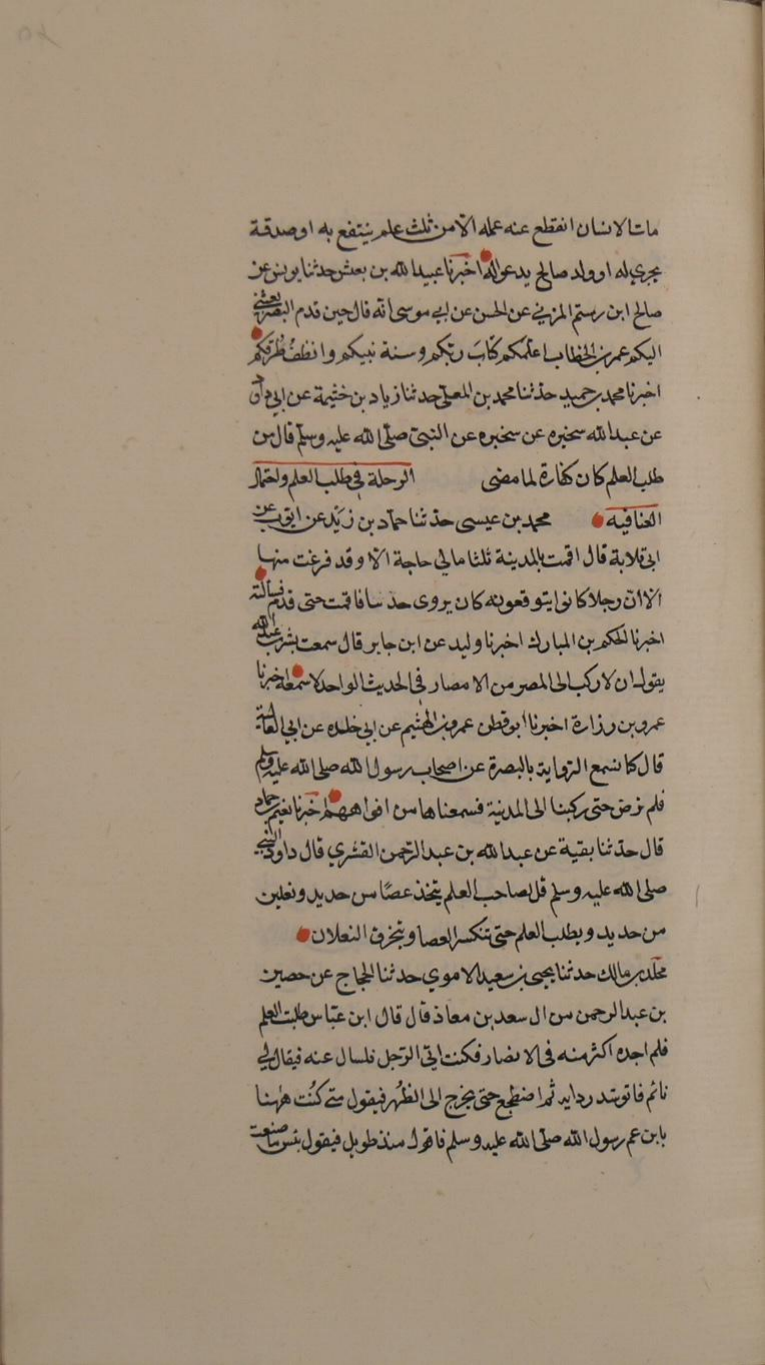 مات الانسان انقطع عنه عمله الا من ثلث علم ينتفع به او صدقة
تجري له او ولد صالح يدعو له اخبرنا عبيد الله بن يعيش حدثنا يونس عن
صالح ابن رستم المزني عن الحسن عن ابي موسى انه قال حين قدم البصرة بعثني
اليكم عمر بن الخطاب اعلمكم كتاب ربكم وسنة نبيكم وانظف طرقكم
اخبرنا محمد بن حميد حدثنا محمد بن المعلى حدثنا زياد بن خثيمة عن ابي داود
عن عبد الله سخبره عن سخبره عن النبي صلى الله عليه وسلم قال من
طلب العلم كان كفارة لما مضى الرحلة في طلب العلم واحتمال
العنا فيه محمد بن عيسى حدثنا حماد بن زيد عن ايوب عن
ابي قلابة قال اقمت بالمدينة ثلثا مالي حاجة الا وقد فرغت منها
الا ان رجلا كانوا يتوقعونه كان يروى حديثا فاقمت حتى قدم فسالته
اخبرنا الحكم بن المبارك اخبرنا وليد عن ابن جابر قال سمعت بشر بن عبد الله
يقول ان لاركب الى المصر من الامصار في الحديث الواحد لاسمعه اخبرنا
عمرو بن رزارة اخبرنا ابو قطن عمرو بن الهيثم عن ابي خلده عن ابي العالية
قال كنا نسمع الرواية بالبصرة عن اصحاب رسول الله صلى الله عليه وسلم
فلم نرض حتى ركبنا الى المدينة فسمعناها من افواههم اخبرنا نعيم بن حماد
قال حدثنا بقية عن عبد الله بن عبد الرحمن القشري قال داود النبي
صلى الله عليه وسلم قل لصاحب العلم يتخذ عصا من حديد ونعلين
من حديد ويطلب العلم حتى تنكسر العصا وتنخرق النعلان
مخلد بن مالك حدثنا يحيى بن سعيد الاموي حدثنا الحجاج عن حصين
بن عبد الرحمن من ال سعد بن معاذ قال قال ابن عباس طلبت العلم
فلم اجده اكثر منه في الانصار فكنت اتي الرجل فلسال عنه فيقال لي
نائم فاتوسد ردايه ثم اضطجع حتى يخرج الى الظهر فيقول متى كنت ههنا
يا بن عم رسول الله صلى الله عليه وسلم فاقول منذ طويل فيقول بئس ما صنعت